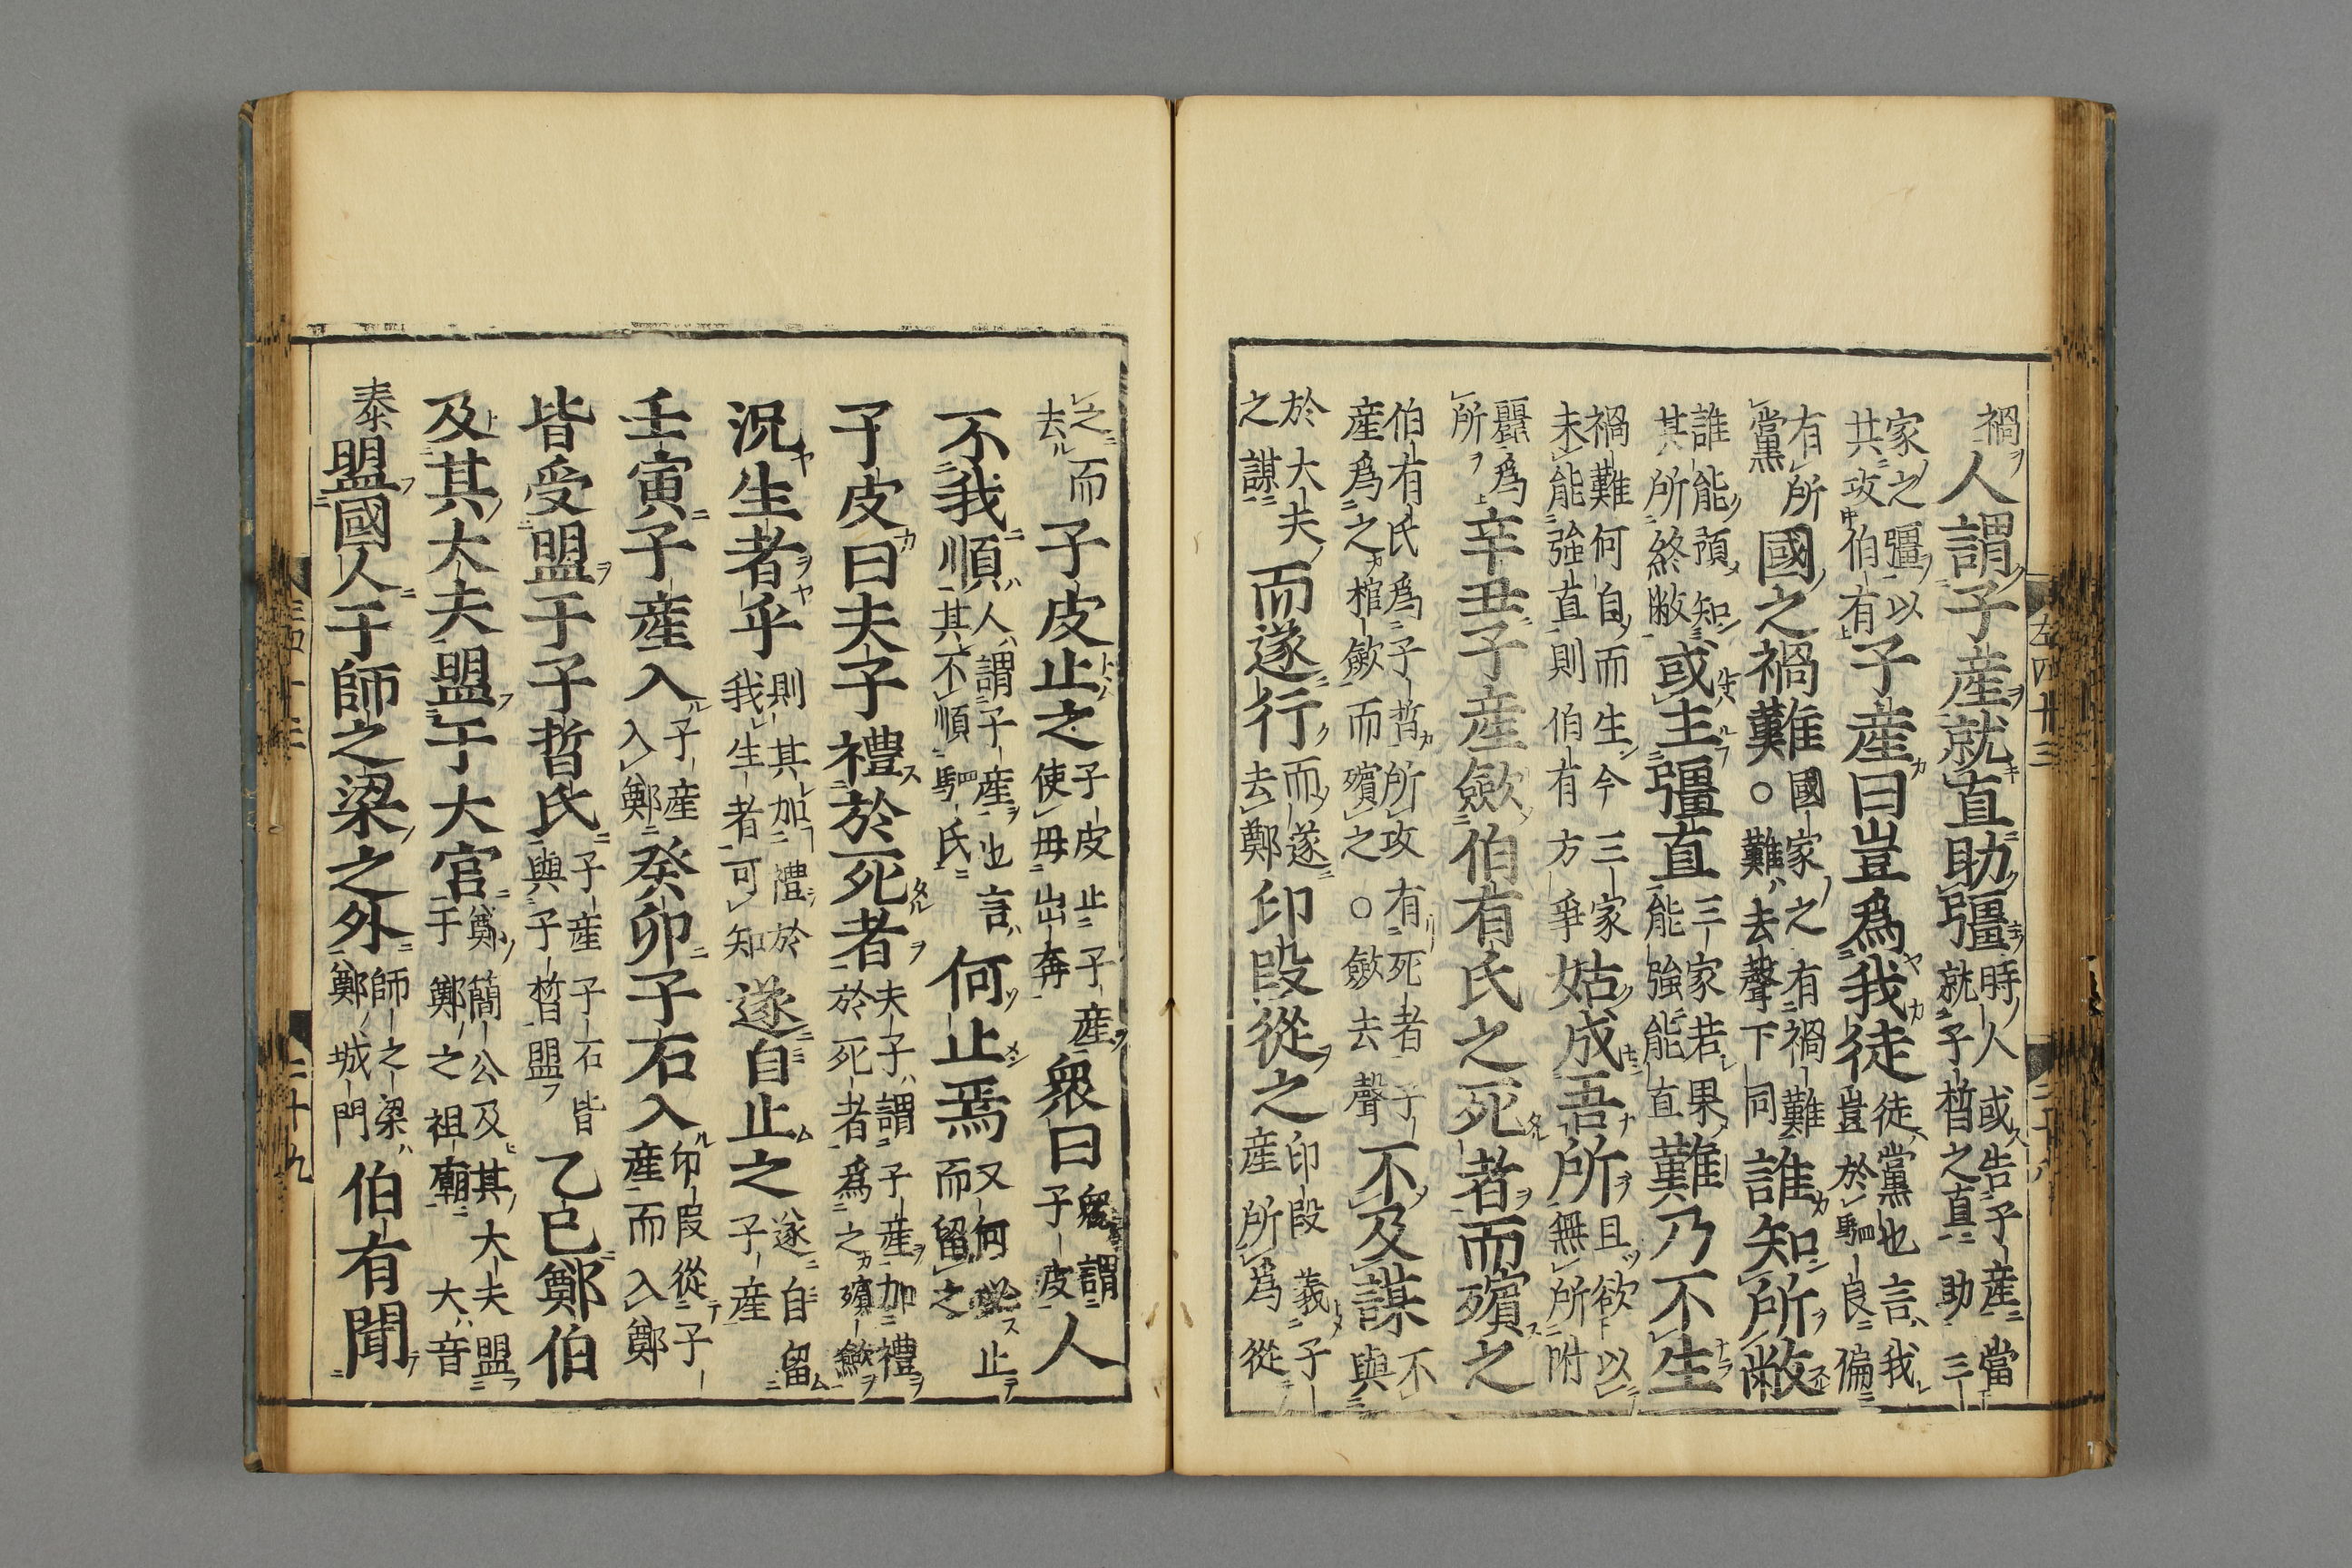 禍人謂子產就直助彊時人或告子產當就子皙之直助三
家之彊以共攻伯有子產曰豈爲我徒徒黨也言我豈於駟良偏
有所黨國之禍難○國家之有禍難難去聲下同誰知所敝
誰能預知其所終敝或主彊直三家若果能強能直難乃不生
禍難何自而生今三家未能強直則伯有方爭姑成吾所且欲以無所附
麗爲所辛丑子產歛伯有氏之死者而殯之
伯有氏爲子皙所攻有死者子產爲之棺歛而殯之○歛去聲不及謀不與
於大夫之謀而遂行而遂去鄭印段從之印段義子產所爲從
之而去子皮止之子皮止子產使毋出奔衆曰衆謂子皮人
不我順人謂子產也言其不順駟氏何止焉又何必止而留之
子皮曰夫子禮於死者夫子謂子產加禮於死者爲之殯歛
況生者乎則其加禮於我生者可知遂自止之遂自留子產
壬寅子產入子產入鄭癸卯子石入印段從子產而入鄭
皆受盟于子晳氏子產子石皆與子晳盟乙巳鄭伯
及其大夫盟于大官鄭簡公及其大夫盟于鄭之祖廟大音
泰盟國人于師之梁之外師之梁鄭城門伯有聞
左四十三
二十八
二十九